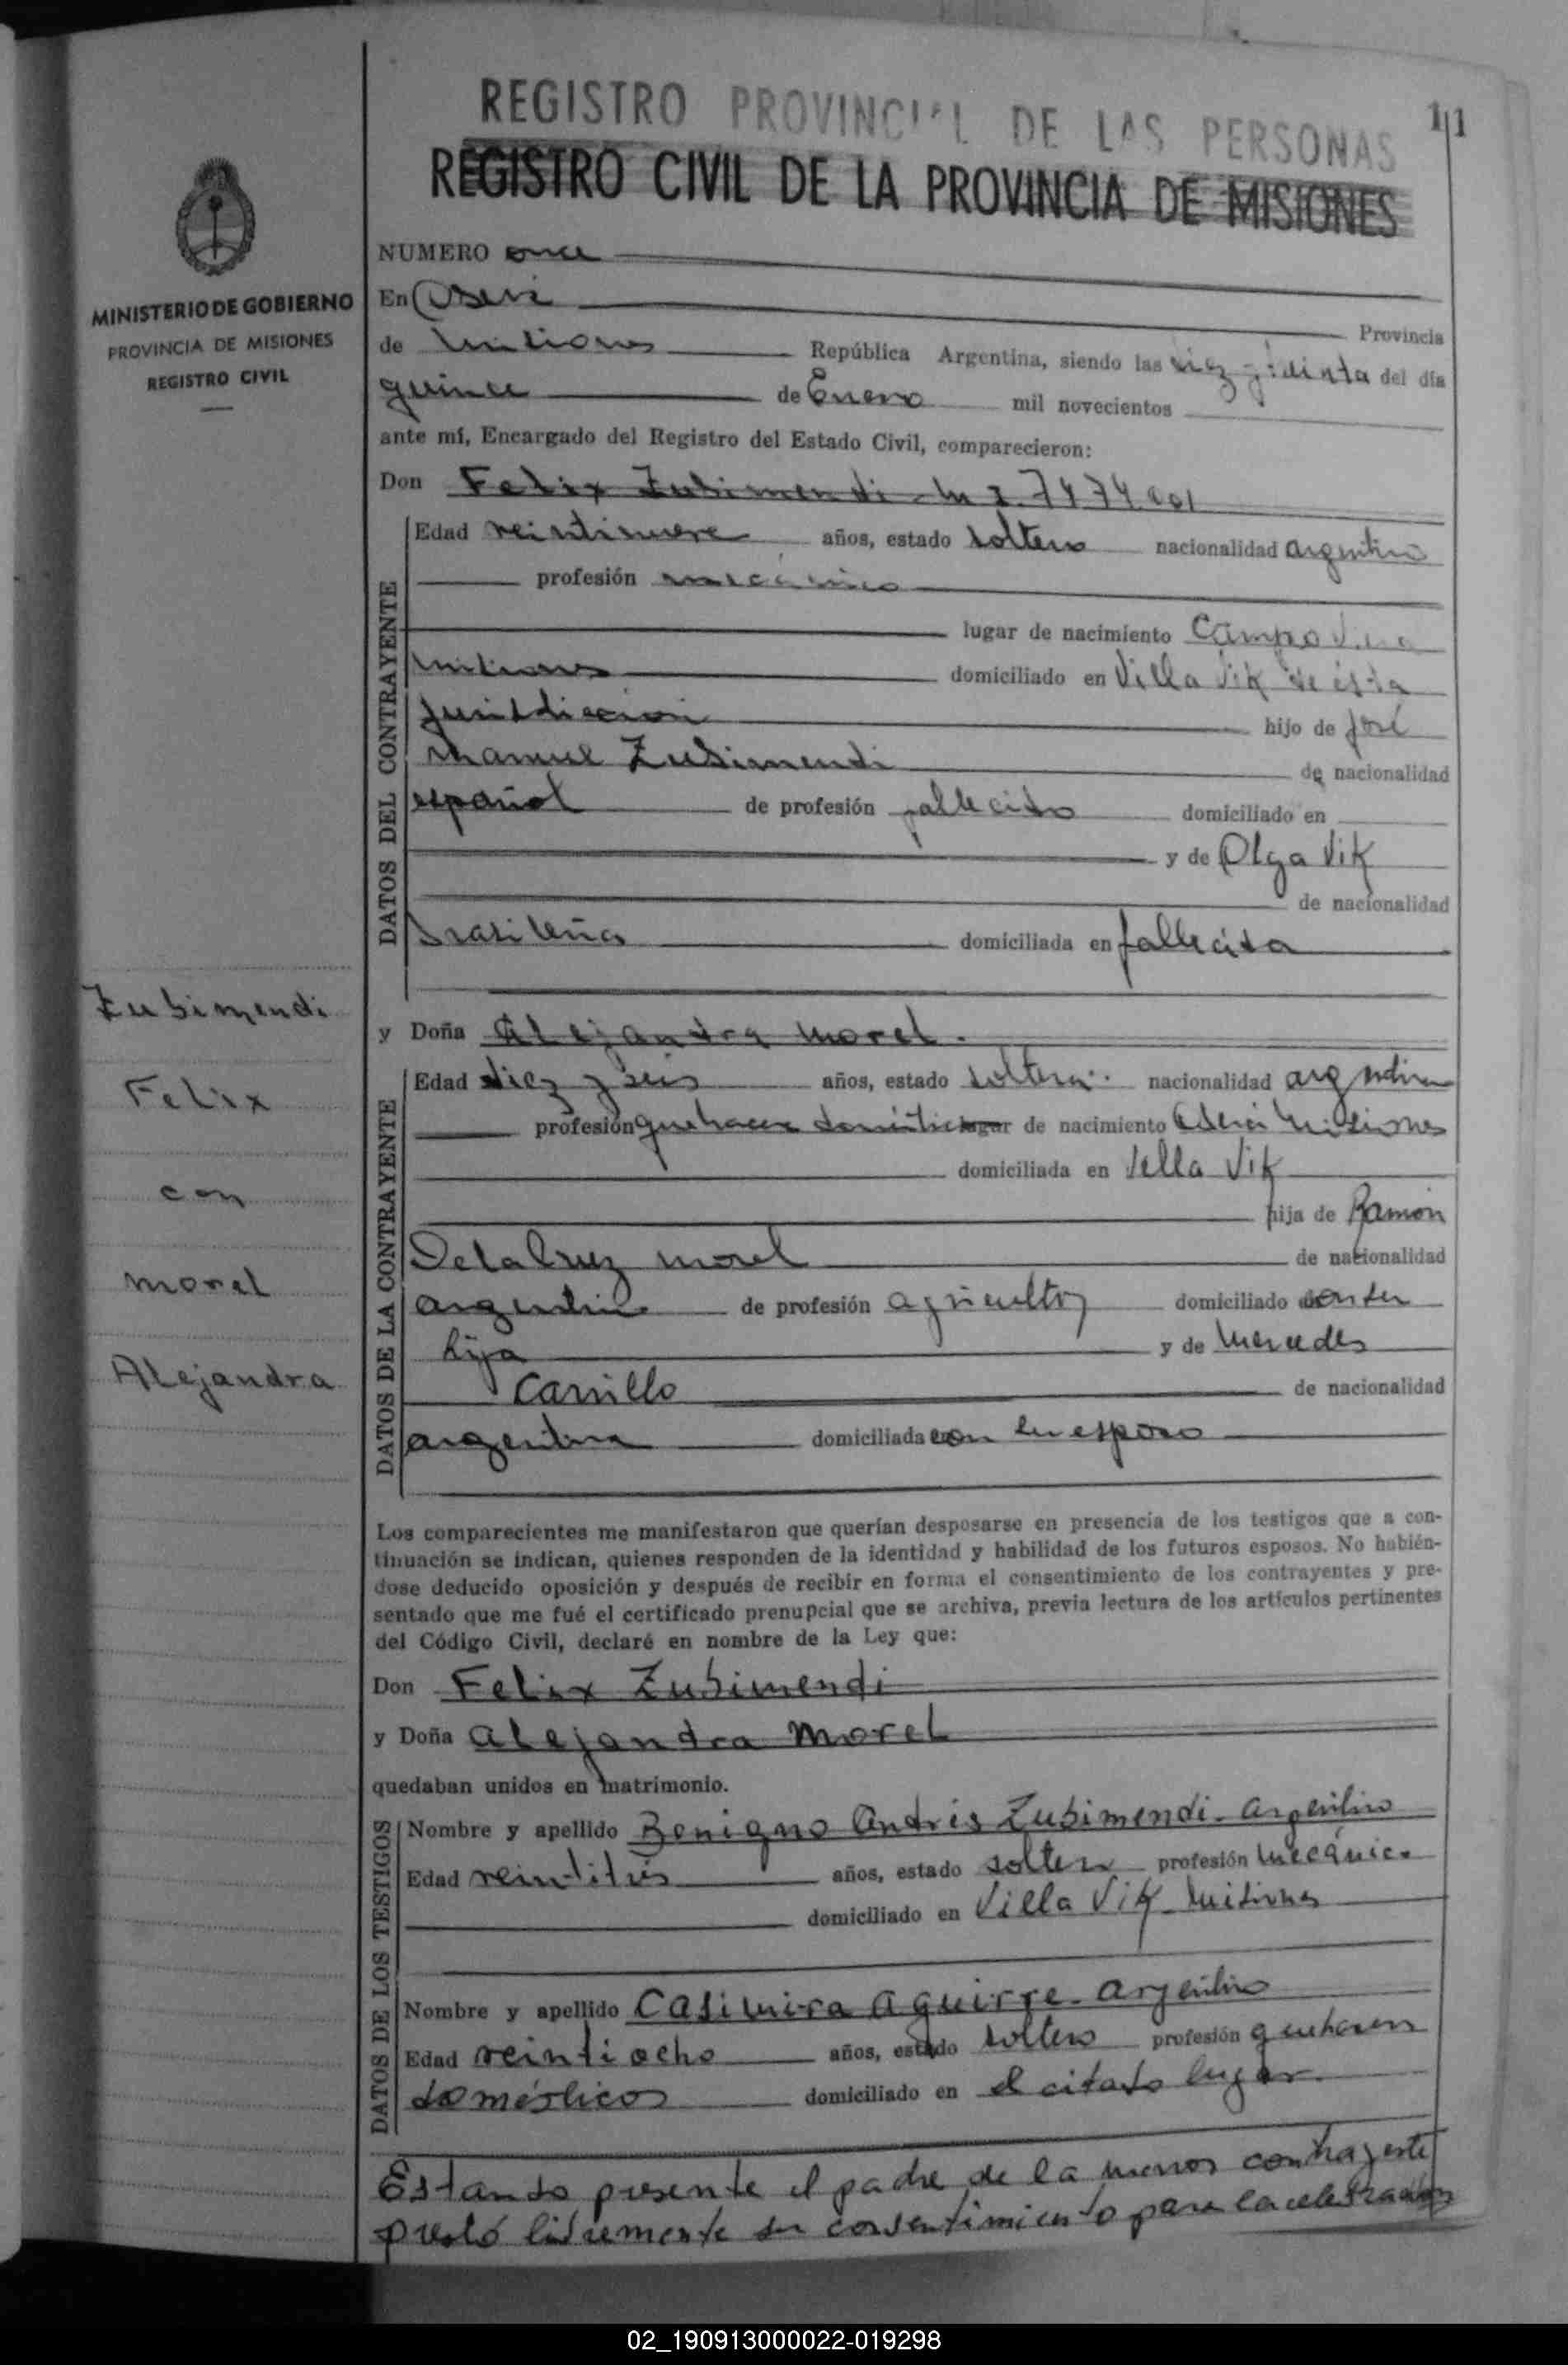 REGISTRO PROVINCIAL DE LAS PERSONAS
11
REGISTRO CIVIL DE LA PROVINCIA DE MISIONES
MINISTERIO DE GOBIERNO
PROVINCIA DE MISIONES
REGISTRO CIVIL
NUMERO once
En Oberá Provincia
de Misiones República Argentina, siendo las diez y treinta del día
quince de Enero mil novecientos
ante mí, Encargado del Registro del Estado Civil, comparecieron:
Don Felix Zubimendi - M I. 7474.001
DATOS DEL CONTRAYENTE
Edad veintinueve años, estado soltero nacionalidad argentino
profesión mecánico
lugar de nacimiento Campo Viera
Misiones domiciliado en Villa Vik de ésta
Jurisdicción hijo de José
Manuel Zubimendi de nacionalidad
español de profesión fallecido domiciliado en
y de Olga Vik
de nacionalidad
brasileña domiciliada en fallecida
Zubimendi
Felix
con
Morel
Alejandra
y Doña Alejandra Morel.
DATOS DE LA CONTRAYENTE
Edad diez y seis años, estado soltera. nacionalidad argentina
profesión quehacer doméstico lugar de nacimiento Oberá Misiones
domiciliada en Villa Vik
hija de Ramón
Delacruz Morel de nacionalidad
argentino de profesión agricultor domiciliado con su
hija y de Mercedes
Carrillo de nacionalidad
argentina domiciliada con su esposo
Los comparecientes me manifestaron que querían desposarse en presencia de los testigos que a con-
tinuación se indican, quienes responden de la identidad y habilidad de los futuros esposos. No habién-
dose deducido oposición y después de recibir en forma el consentimiento de los contrayentes y pre-
sentado que me fué el certificado prenupcial que se archiva, previa lectura de los artículos pertinentes
del Código Civil, declaré en nombre de la Ley que:
Don Felix Zubimendi
y Doña Alejandra Morel
quedaban unidos en matrimonio.
DATOS DE LOS TESTIGOS
Nombre y apellido Benigno Andrés Zubimendi - argentino
Edad veintitrés años, estado soltero profesión Mecánico
domiciliado en Villa Vik - Misiones
Nombre y apellido Casimira Aguirre - Argentino
Edad veintiocho años, estado soltero profesión quehaceres
domésticos domiciliado en el citado lugar.
Estando presente el padre de la menor contrayente
prestó libremente su consentimiento para la celebración
02_190913000022-019298